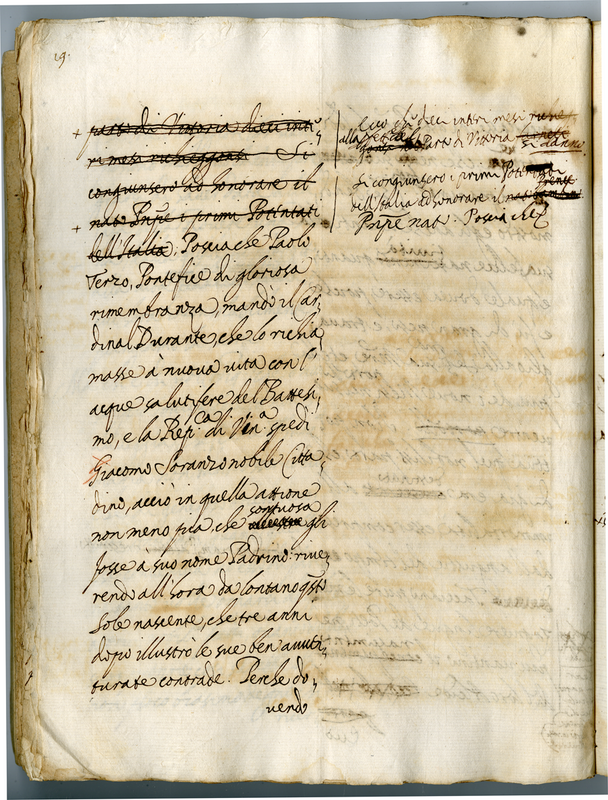 19.
parto di Vittoria dieci inti,
ri mesi richieggonsi Si
congiunsero ad honorare il
nat. Pn͠pe i primi Potintati
dell'Italia; Posciache Paolo
Terzo, Pontefice di gloriosa
rimembranza, mandò il Car
dinal Durante, che lo richia,
masse à nuova vita con l'
acque salutifere del Battesi,
mo, e la Rep.ca di Vin.a spedì
Giacomo Soranzo nobile Citta
dino, acciò in quella attione
non meno pia, che sontuosa gli
fosse a suo nome Padrino: rive,
rendo all'hora da lontano q͠sto
Sole nascente, che tre anni
dopo illustrò le sue ben avvin,
turate contrade. Perche do,
vendo
Ecco che dieci intiri mesi
alla Parto di Vittoria si danno
Si congiunsero i primi Potintati
dell'Italia ad honorare il
Pn͠pe nat. Posciache